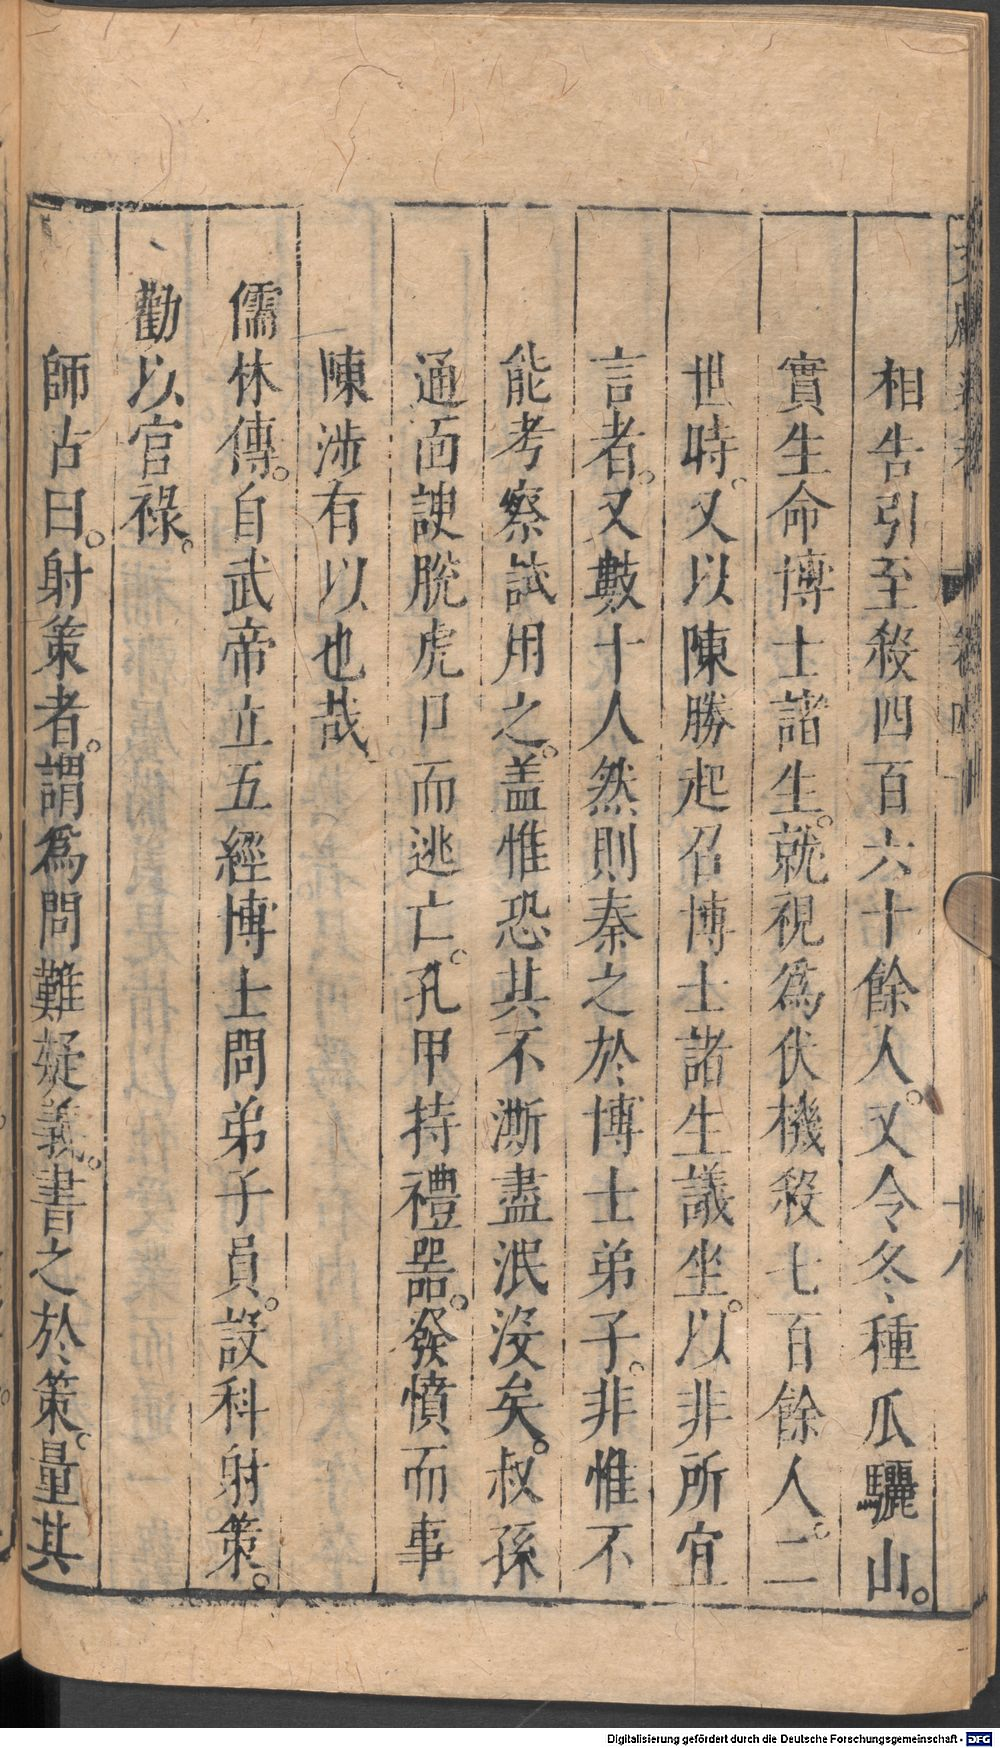 相告引至殺四百六十餘人。又令冬種瓜驪山。
實生命博士諸生。就視為伏機殺七百餘人。二
世時。又以陳勝起召博士諸生議坐。以非所宜
言者。又數十人然則秦之於博士弟子。非惟不
能考察試用之。盖惟恐其不澌盡泯没矣。叔孫
通面諛脫虎口而逃亡。孔甲持禮器。發憤而事
陳涉有以也哉
儒林傳。自武帝立五經博士問弟子員。設科射策。
勸以官祿。
師古曰。射策者。謂爲問難疑義。書之於策。量其
Digitalisierung gefördert durch die Deutsche Forschungsgemeinschaft - DFG